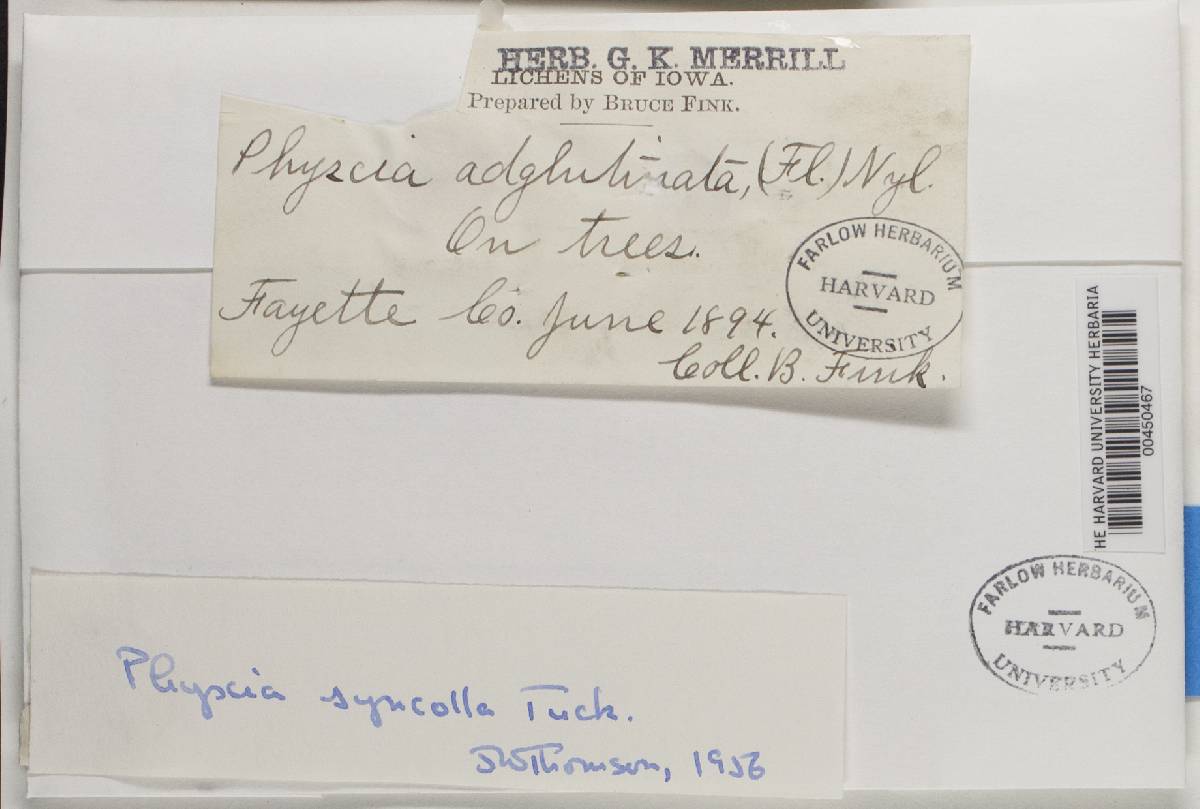 HERB. G. K. MERRILL
LICHENS OF IOWA.
Prepared by BRUCE FINK.
Physcia adglutinata, (Fl.) Nyl.
On trees.
Fayette Co. June 1894.
Coll. B. Fink.
FARLOW HERBARIUM
HARVARD
UNIVERSITY
HE HARVARD UNIVERSITY HERBARIA
00450467
FARLOW HERBARIUM
HARVARD
UNIVERSITY
Physcia syncolla Tuck.
JWThomson, 1956